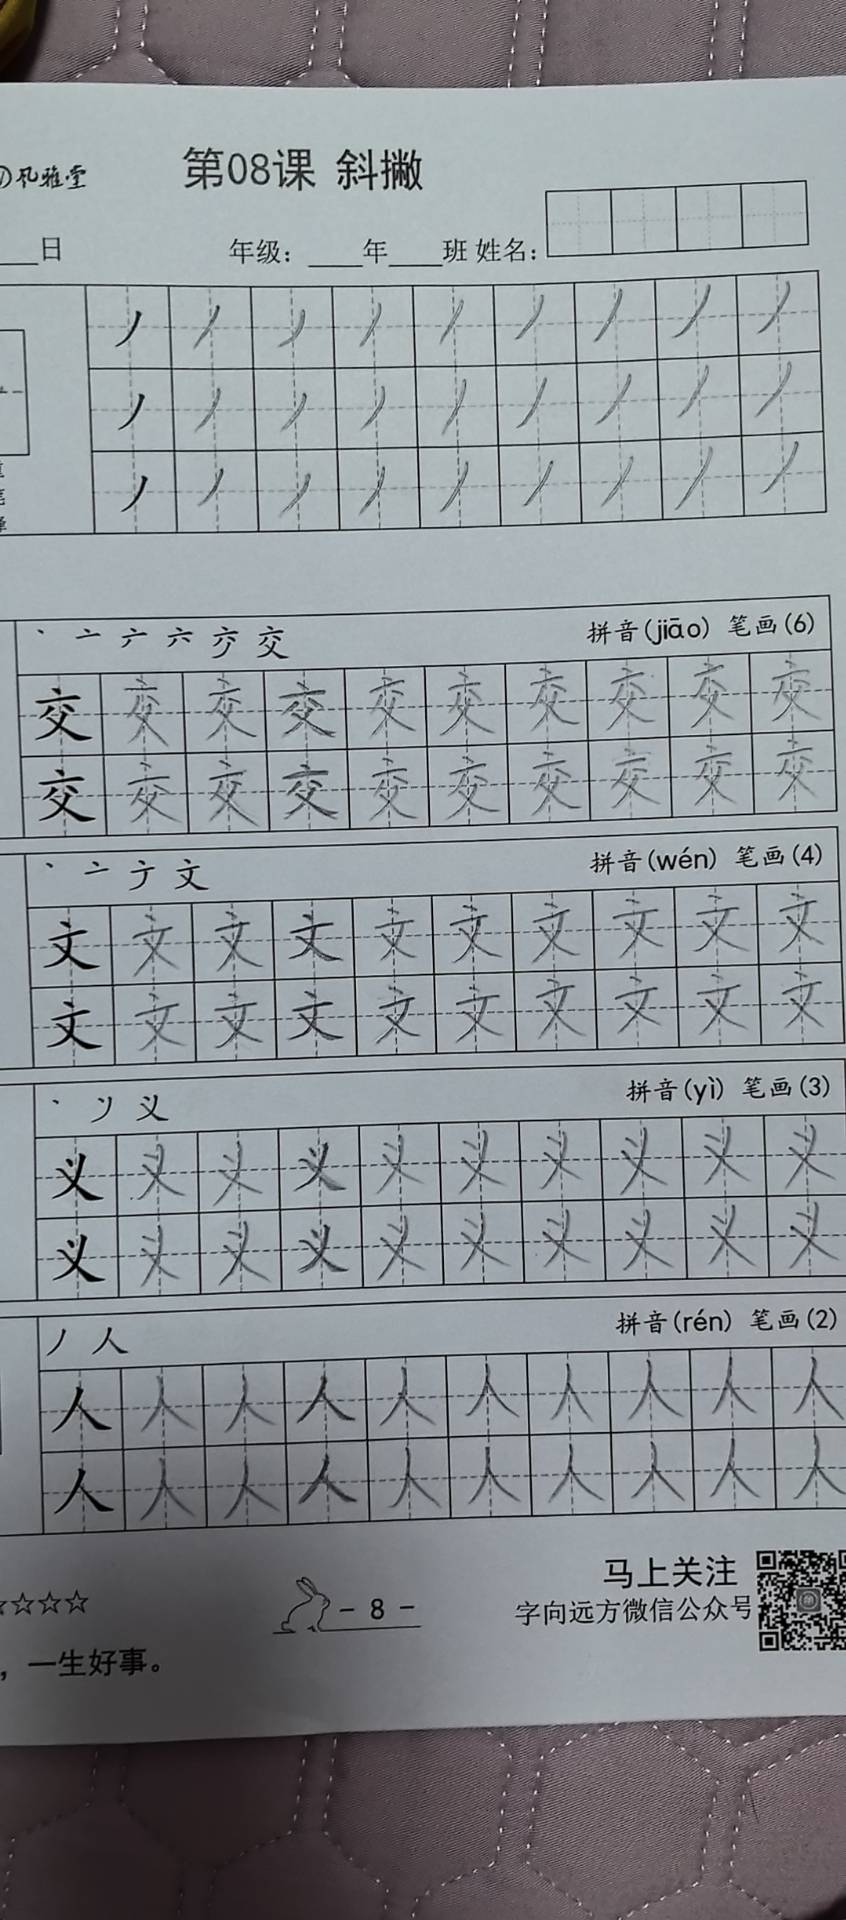 风雅堂
第08课 斜撇
日 年级：____年____班 姓名：
丿 丿 丿 丿 丿 丿 丿 丿 丿
丿 丿 丿 丿 丿 丿 丿 丿 丿
丿 丿 丿 丿 丿 丿 丿 丿 丿
丶 亠 六 交 拼音(jiāo) 笔画(6)
交 交 交 交 交 交 交 交 交 交
交 交 交 交 交 交 交 交 交 交
丶 亠 文 拼音(wén) 笔画(4)
文 文 文 文 文 文 文 文 文 文
文 文 文 文 文 文 文 文 文 文
丶 义 拼音(yì) 笔画(3)
义 义 义 义 义 义 义 义 义 义
义 义 义 义 义 义 义 义 义 义
丿 人 拼音(rén) 笔画(2)
人 人 人 人 人 人 人 人 人 人
人 人 人 人 人 人 人 人 人 人
☆☆☆☆
- 8 -
马上关注
字向远方微信公众号
，一生好事。